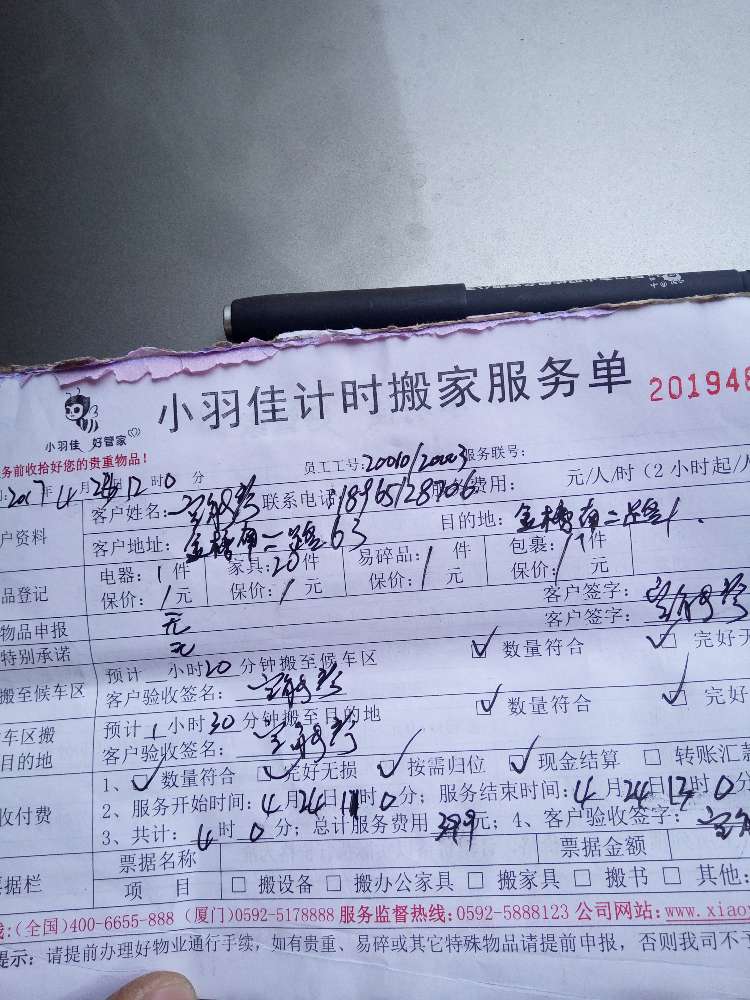 小羽佳计时搬家服务单 201948
小羽佳 好管家
务前收拾好您的贵重物品!
2017年4月24日12时0分 员工工号:20010/20003 服务联号:
户资料 客户姓名: 联系电话:18965128706 费用: 元/人/时(2小时起/人
客户地址: 63 目的地:
品登记 电器:1件 家具:20件 易碎品:/件 包裹:1件
保价:/元 保价:/元 保价:/元 保价:/元
物品申报 无 客户签字:
特别承诺 无 客户签字:
搬至候车区 预计__小时20分钟搬至候车区 ☑数量符合 ☑完好无
客户验收签名:
车区搬目的地 预计1小时30分钟搬至目的地 ☑数量符合 ☑完好
客户验收签名:
收付费 1、☑数量符合 ☑完好无损 ☑按需归位 ☑现金结算 □转账汇款
2、服务开始时间:4月24日 时0分;服务结束时间:4月24日 时0分;
3、共计: 4时0分;总计服务费用 元;4、客户验收签字:
据栏 票据名称 票据金额
项 目 □搬设备 □搬办公家具 □搬家具 □搬书 □其他:
线:(全国)400-6655-888 (厦门)0592-5178888 服务监督热线:0592-5888123 公司网站:www.xiao
提示:请提前办理好物业通行手续,如有贵重、易碎或其它特殊物品请提前申报,否则我司不予